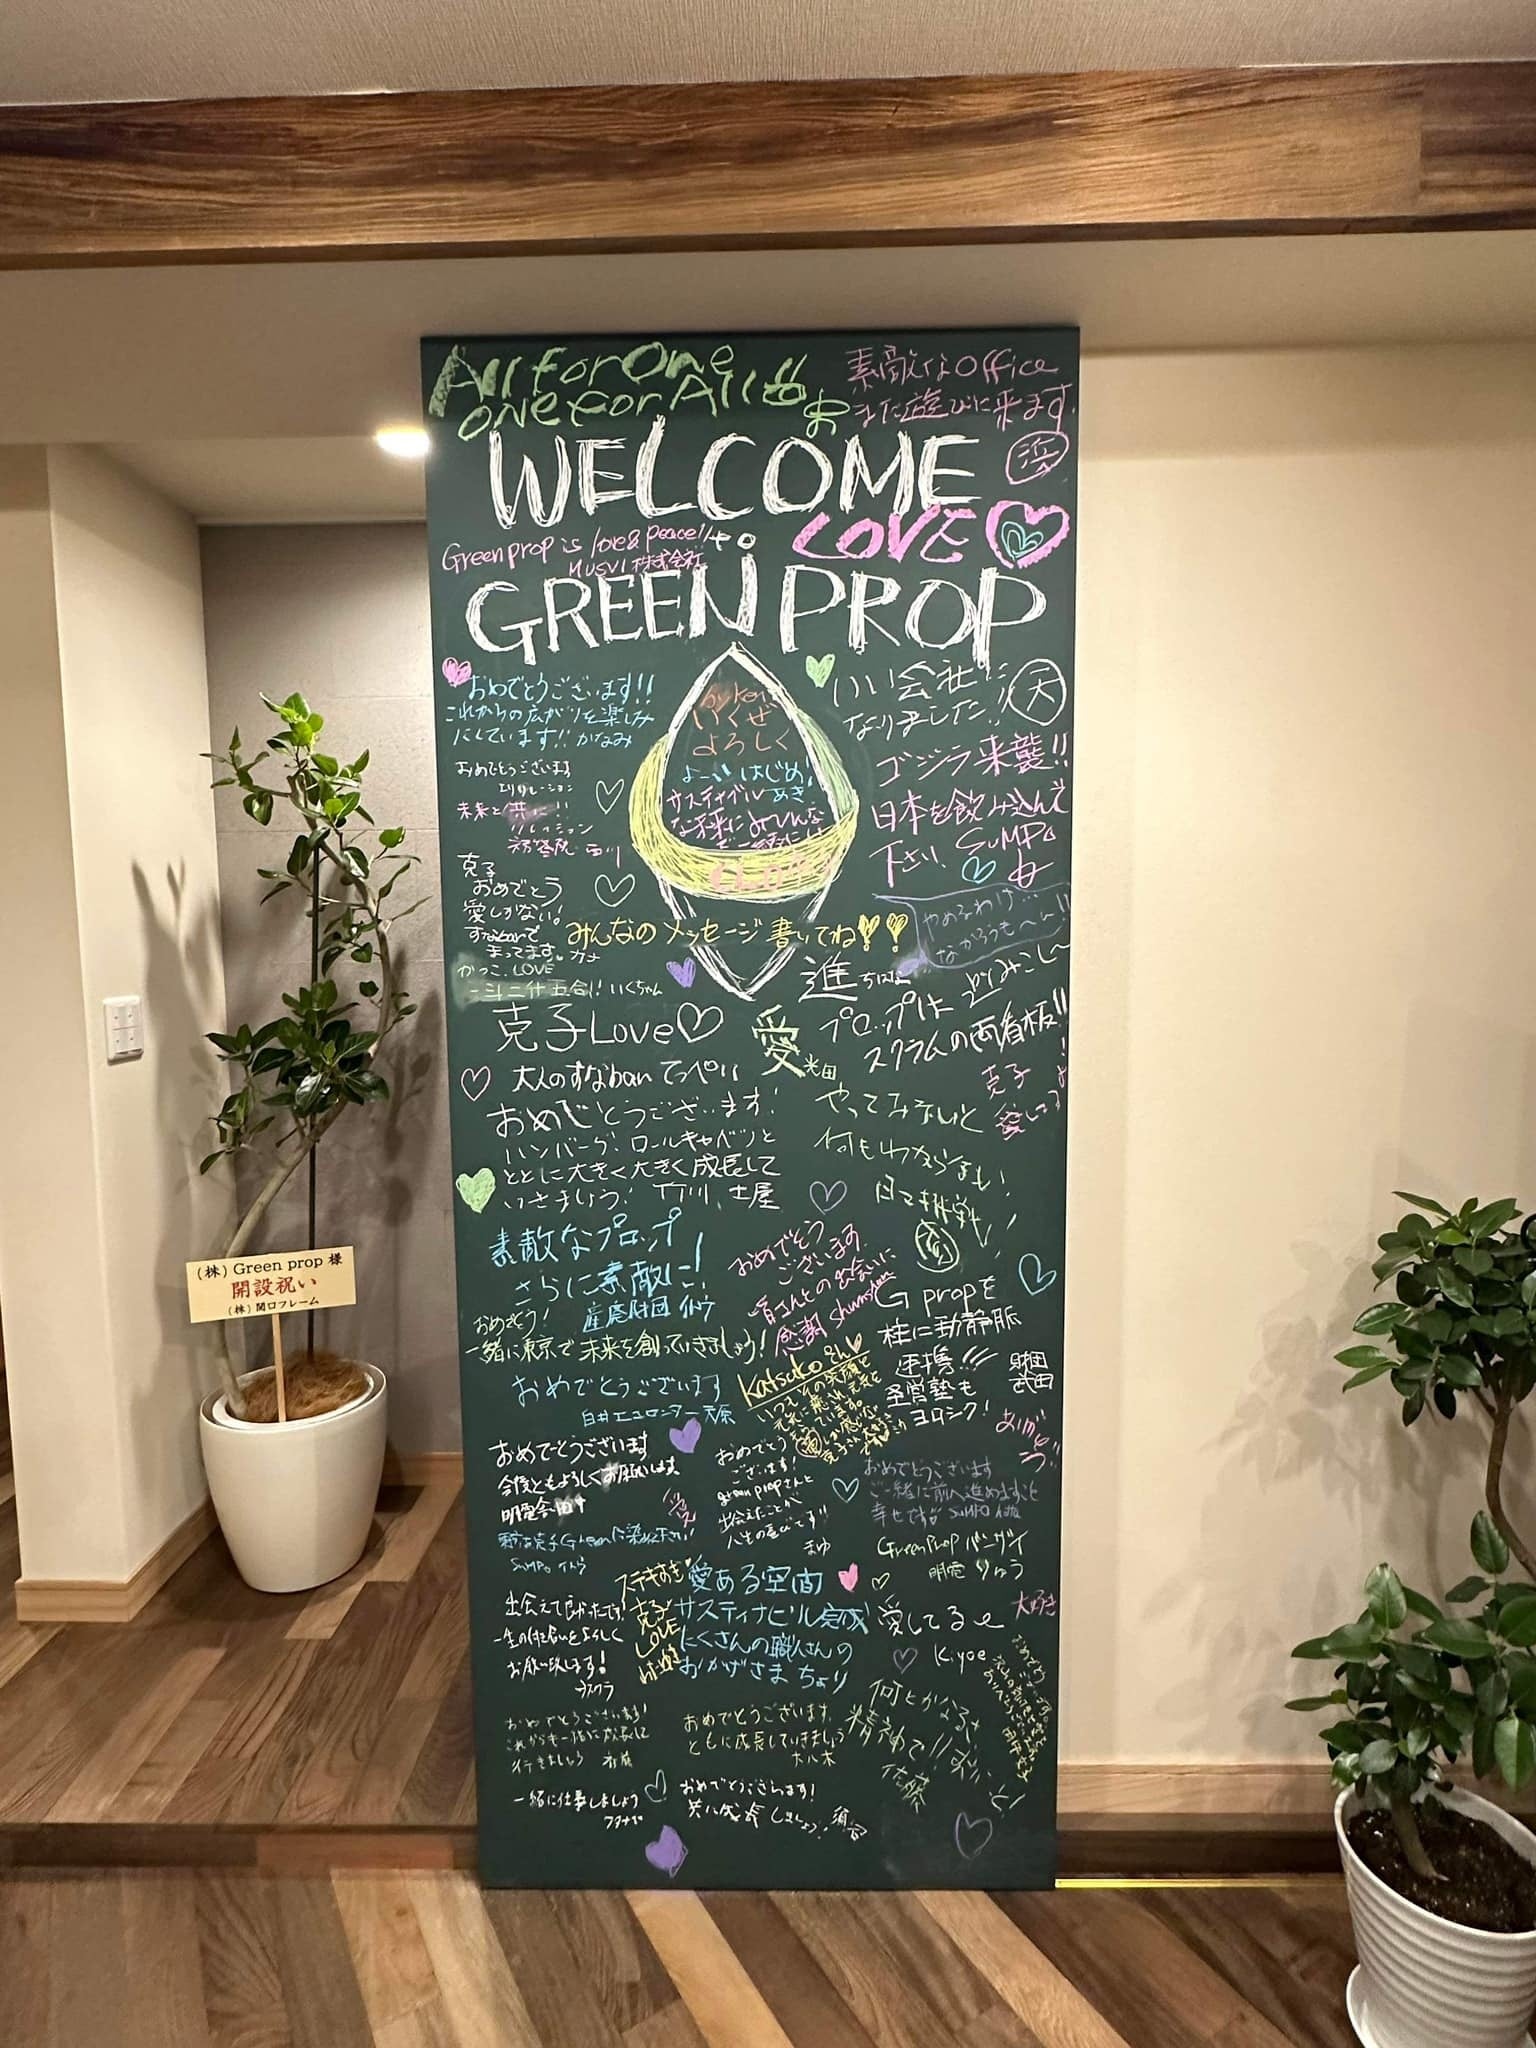 All For One
one for All
素敵なOffice
また遊びに来ます。
浜
WELCOME
to
LOVE
Green prop is love & peace!!
MUSVI 株式会社
GREEN PROP
おめでとうございます!!
これからの広がりを楽しみ
にしています!! かなみ
いくぜ
よろしく
よーいはじめ!
サスティナブル
な未来にみんな
で一緒に
いい会社に
なりました!!
天
ゴジラ来襲!!
日本を飲み込んで
下さい SUMPO
おめでとうございます
未来と共に!!
克子
おめでとう
愛しかない!
すなbanで
まってます。カナ
かつこ. LOVE
一斗二升五合!! いくちゃん
みんなのメッセージ書いてね
やめるわけ…
ながろうも〜ん!!
by みこし〜
進
克子Love
愛
光田
プロップは
スクラムの両看板!!
克子
愛してるよ!
大人のすなban てっぺい
おめでとうございます!
ハンバーグ、ロールキャベツと
ともに大きく大きく成長して
いきましょう! 竹川、土屋
やってみないと
何もわからない!
日々挑戦!
素敵なプロップ
さらに素敵に!
産廃財団
おめでとう!
一緒に東京で未来を創っていきましょう!
おめでとう
ございます。
皆さんとの出会いに
感謝
G propを
柱に動静脈
連携!!!
経営塾も
ヨロシク!
財団
武田
おめでとうございます
Katsuko
いつもその笑顔と
ありがとう!!
おめでとうございます
今後ともよろしくお願いします
明電舎
愛
おめでとう
ございます!
green propさんと
出会えたことが
人生の喜びです!!
まゆ
おめでとうございます
ご一緒に前へ進めますこと
幸せです SUMPO
Green Prop バンザイ
明電 りゅう
SUMPO
ステキすぎ
愛ある空間
克子
LOVE
サスティナビル完成
たくさんの職人さんの
おかげさま ちょり
出会えて良かったです!
一生の付き合いをよろしく
お願い致します!
愛してるよ
大好き
Kiyoe
何とかなるさ
精神で!!
佐藤
おめでとうございます!
これからも一緒に成長して
行きましょう
おめでとうございます。
ともに成長していきましょう
大八木
一緒に仕事しましょう
おめでとうございます!
共に成長しましょう!
(株) Green prop 様
開設祝い
(株) 関口フレーム